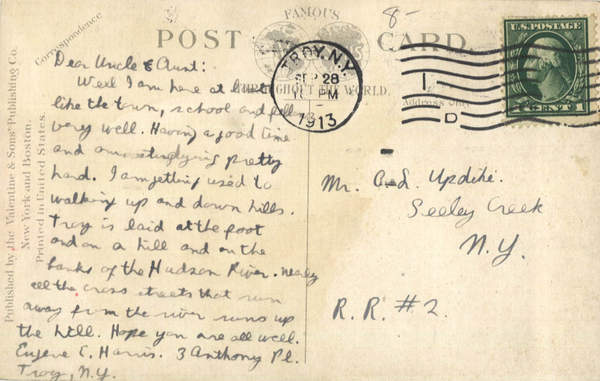 FAMOUS
POST CARD.
THROUGHOUT THE WORLD.
Correspondence
Address Only
Published by the Valentine & Sons' Publishing Co.
New York and Boston.
Printed in United States.
8-
TROY, N.Y.
SEP 28
PM
1913
1
D
U.S. POSTAGE
1 CENT 1
Dear Uncle & Aunt:
Well I am here at last
like the town, school and
very well. Having a good time
and am studying pretty
hard. I am getting used to
walking up and down hills.
Troy is laid at the foot
and on a hill and on the
banks of the Hudson River. Nearly
all the cross streets that run
away from the river runs up
the hill. Hope you are all well.
Eugene C. Harris. 3 Anthony Pl.
Troy, N.Y.
Mr. Updike.
Seeley Creek
N.Y.
R.R. #2.